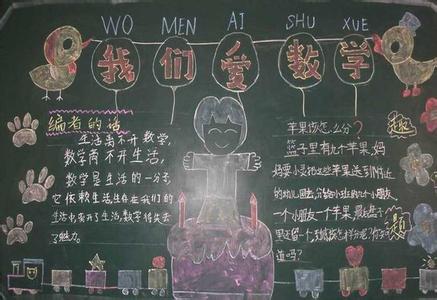 WO MEN AI SHU XUE
我们爱数学
编者的话
生活离不开数学,
数学离不开生活,
数学是生活的一部分
它依赖生活,生存在我们的
生活中,离开了生活,数学将失去
了魅力。
苹果该怎么分?
趣
篮子里有几个苹果,妈
妈要小灵把这些苹果送到附近
的幼儿园去,分给小班的几个小朋友
一个小朋友一个苹果,最后篮子
里还留一个
道吗?
题